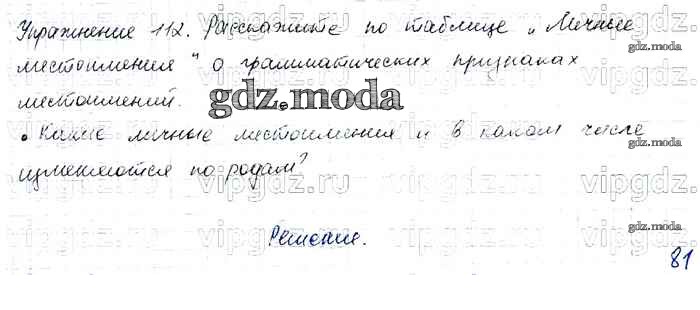 Упражнение 112. Расскажите по таблице „Личные
местоимения“ о грамматических признаках
местоимений.
gdz.moda
• Какие личные местоимения и в каком числе
изменяются по родам?
Решение.
81
vipgdz.ru
gdz.moda